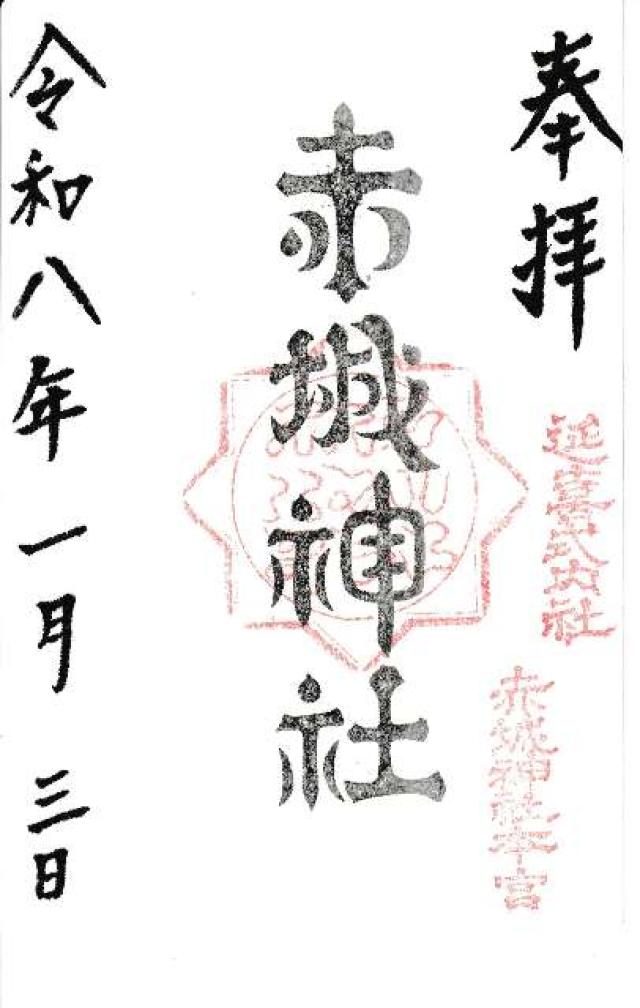 奉拝
延喜式内社
赤城神社本宮
赤城神社
令和八年一月三日